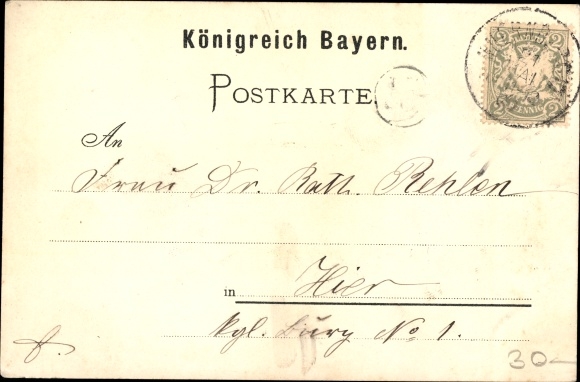 Königreich Bayern.
POSTKARTE
2 2
PFENNIG
An
Frau Dr. Rath. Rehlen
in Hier
kgl. Burg No 1.
30-